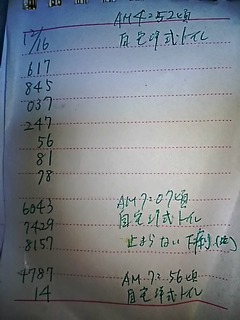 12/16 AM4:52頃
自宅洋式トイレ
617
845
037
247
56
81
78
6043 AM7:07頃
7429 自宅洋式トイレ
8157 止まらない下痢
4787 AM7:56頃
14 自宅洋式トイレ